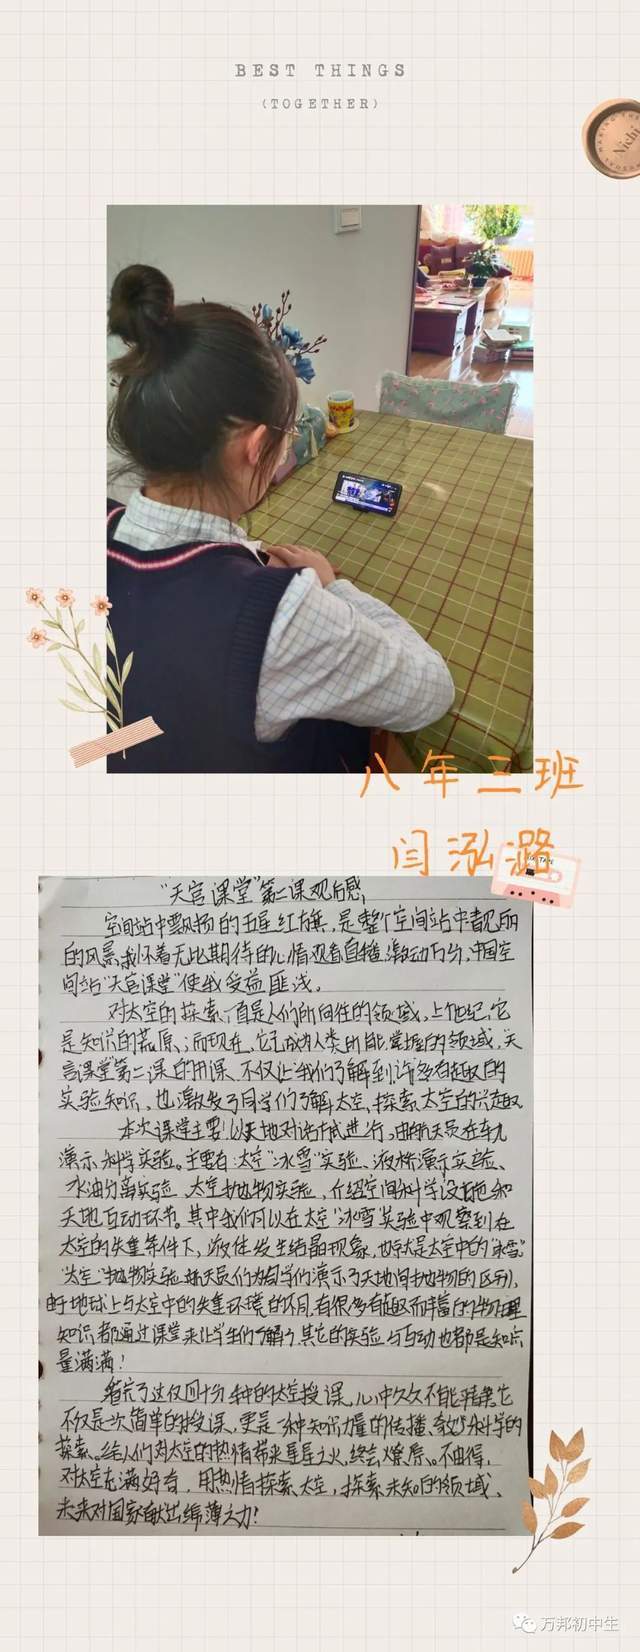 BEST THINGS
(TOGETHER)
Nichi
八年三班
闫泓潞
“天宫课堂”第二课观后感
空间站中飘扬的五星红旗,是整个空间站中靓丽
的风景,我怀着无比期待的心情观看直播,激动万分,中国空
间站“天宫课堂”使我受益匪浅。
对太空的探索,一直是人们所向往的领域,上个世纪,它
是知识的荒原;而现在,它已成为人类所能掌握的领域,天
宫课堂”第二课的开课、不仅让我们了解到许多有趣的
实验知识、也激发了同学们了解太空、探索太空的兴趣
本次课堂主要以天地对话形式进行,由航天员在轨
演示科学实验。主要有:太空“冰雪”实验、液桥演示实验、
水油分离实验、太空抛物实验,介绍空间科学设施和
天地互动环节。其中我们可以在太空“冰雪”实验中观察到在
太空的失重条件下,液体发生结晶现象,也就是太空中的“冰雪”
“太空”抛物实验,航天员们为同学们演示了天地间抛物的区别,
由于地球上与太空中的失重环境的不同,有很多有趣而丰富的物理
知识都通过课堂来让学生们了解了,其它的实验与互动也都是知识
量满满!
看完了这仅四十分钟的太空授课,心中久久不能平静,它
不仅是一次简单的授课、更是一种知识力量的传播、奇妙科学的
探索。给人们对太空的热情带来星星之火,终会燎原。不由得,
对太空充满好奇,用热情探索太空,探索未知的领域、
未来对国家献出绵薄之力!
万邦初中生